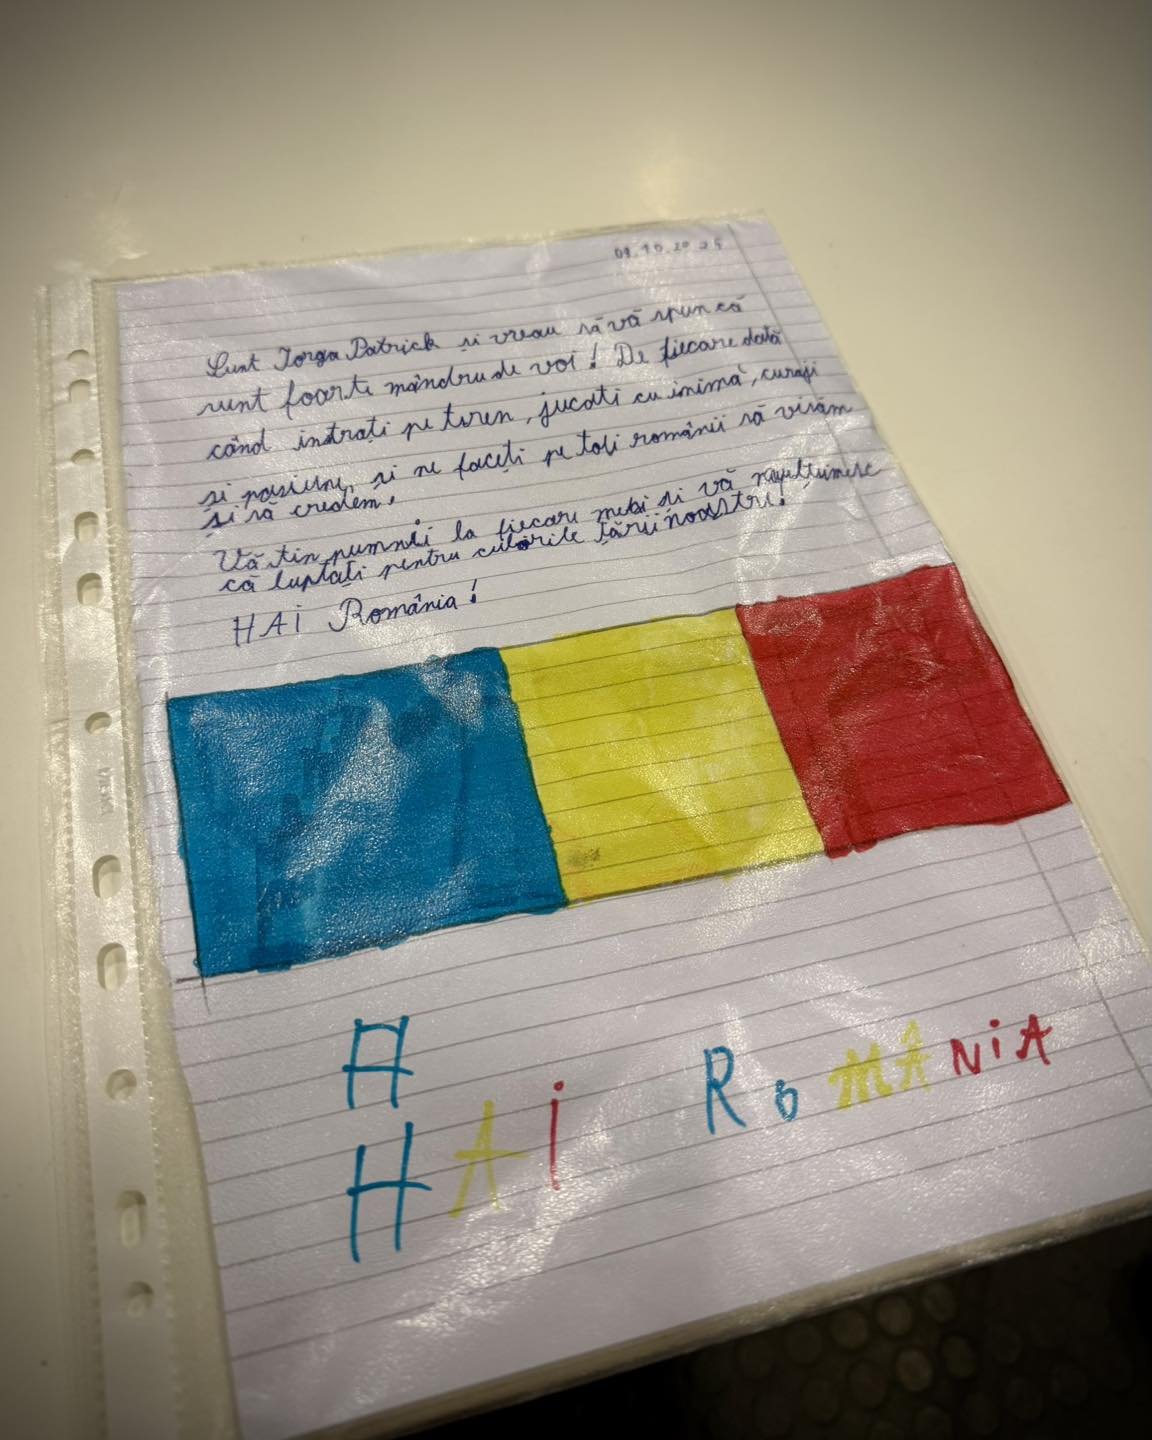 09.10.2025
Sunt Iorga Patrick și vreau să vă spun că
sunt foarte mândru de voi! De fiecare dată
când instrați pe teren, jucati cu inimă, curaji
și pasiune, și ne faceți pe toți românii să visăm
și să credem.
Vă tin pumnii la fiecare meki și vă mulțumesc
că luptați pentru culorile țării noastri!
HAI România!
H
HAI ROMÂNIA